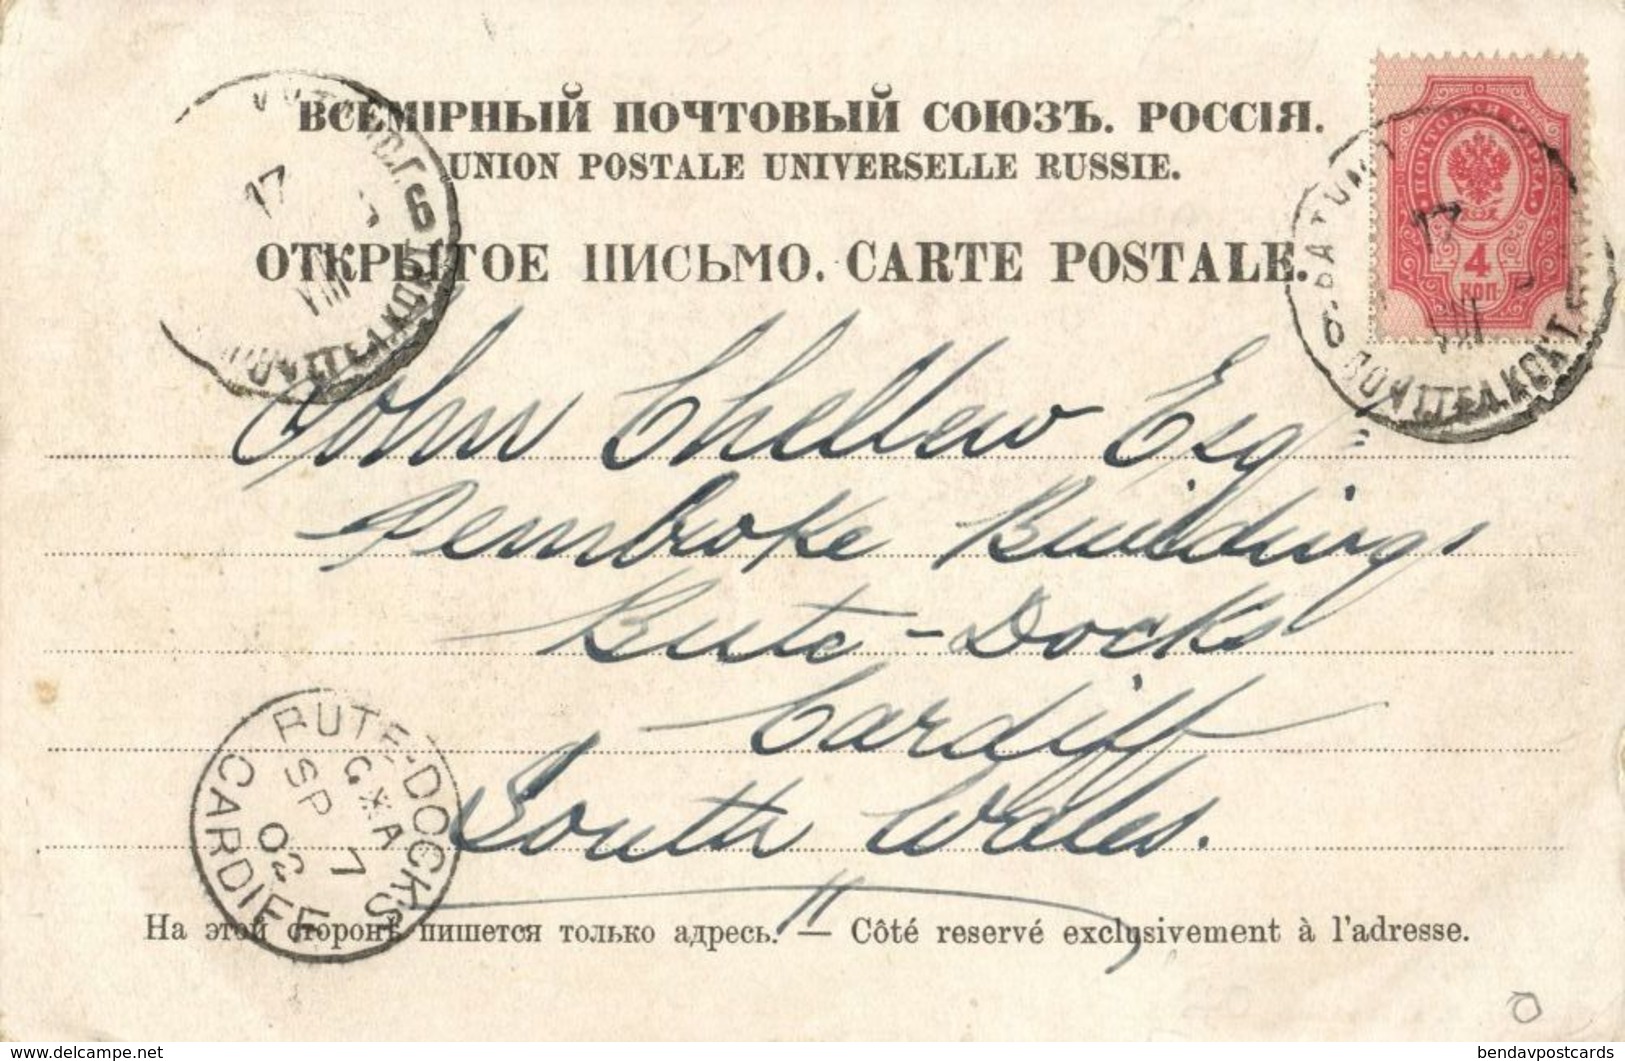 ВСЕМІРНЫЙ ПОЧТОВЫЙ СОЮЗЪ. РОССІЯ.
UNION POSTALE UNIVERSELLE RUSSIE.
ОТКРЫТОЕ ПИСЬМО. CARTE POSTALE.
17
VIII
6
БАТУМЪ
17
VIII
6
ПОЧТОВАЯ МАРКА
4
КОП
John Chellew Esq
Pembroke Buildings
Bute-Docks
Cardiff
South Wales.
BUTE-DOCKS
G A
SP 7
02
CARDIFF
На этой сторонѣ пишется только адресъ. — Côté reservé exclusivement à l'adresse.
www.delcampe.net
bendavpostcards